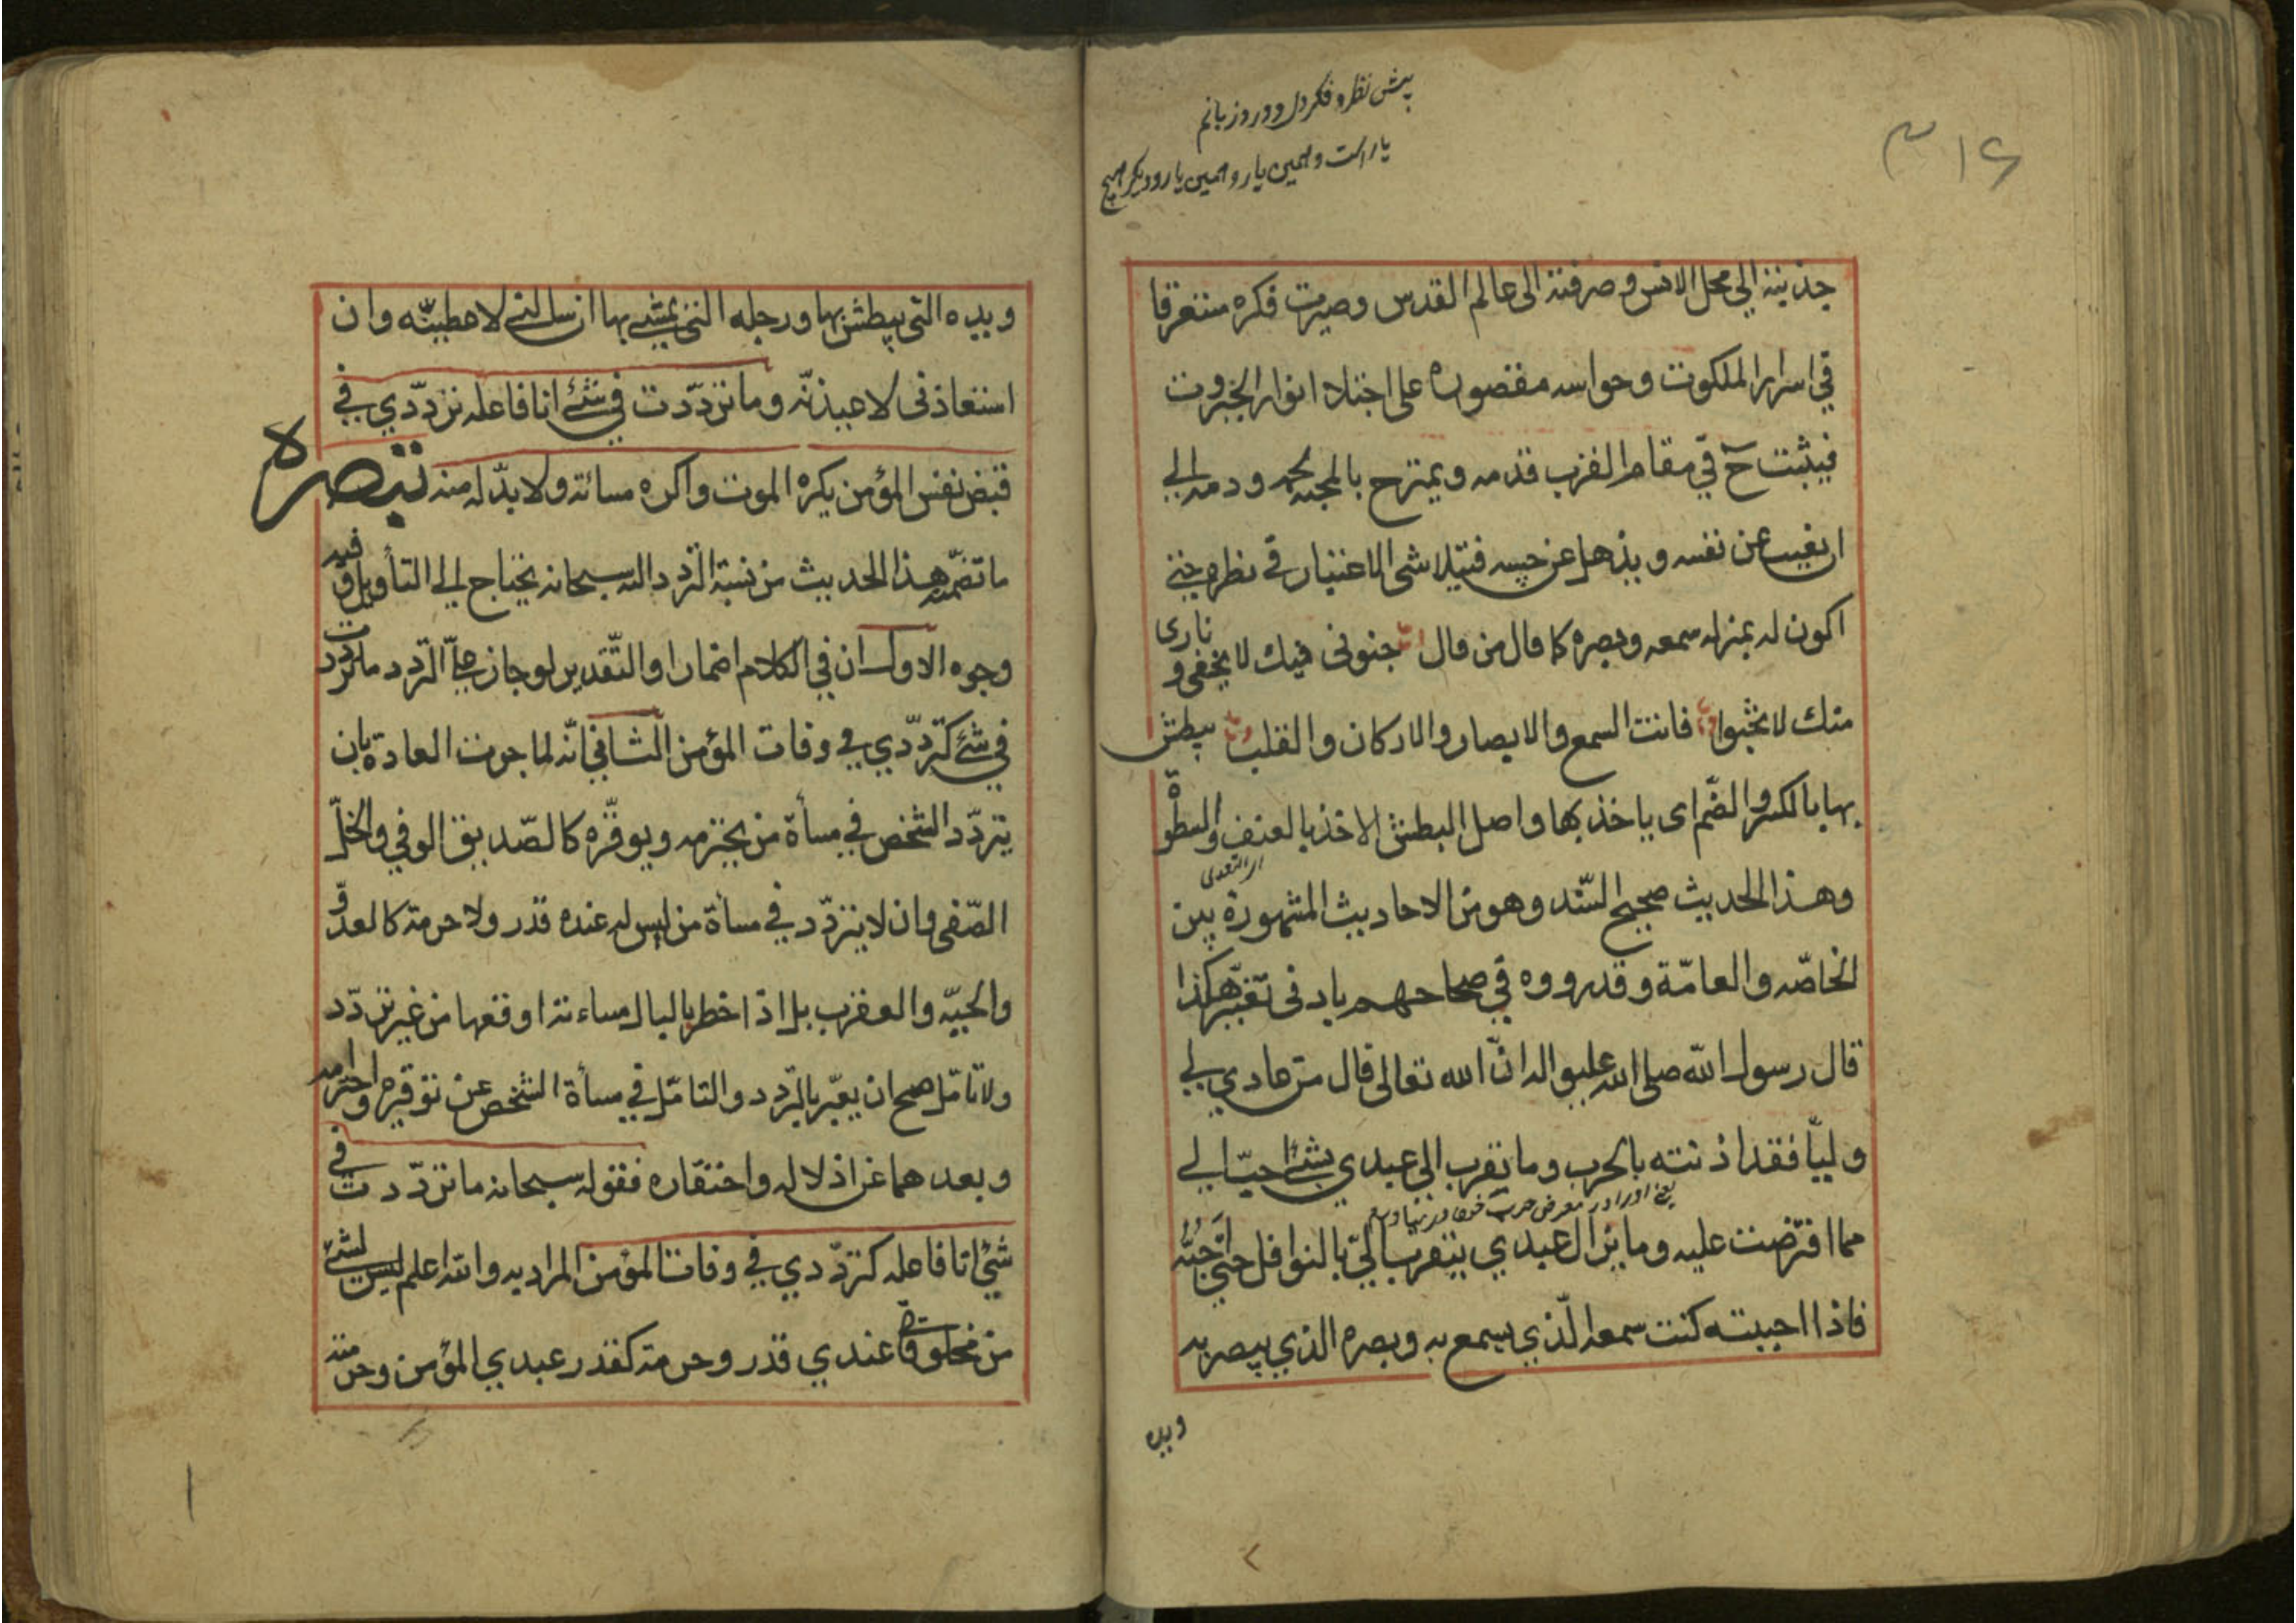 ۳۱۶
پیش نظر و فکر دل و ورد زبانم
یار است و همین یار و همین یار و دیکر هیچ
جذبته الى محل الانس و صرفته الى عالم القدس وصيرت فكره مستغرقا
في اسرار الملكوت وحواسه مقصوره على اجتلاء انوار الجبروت
فيثبت ح في مقام القرب قدمه ويمتزج بالمحبه لحمه ودمه الى
ان يغيب عن نفسه ويذهل عن حسه فيتلاشى الاغيار في نظره حتى
اكون له بمنزله سمعه وبصره كما قال من قال جنونى فيك لا يخفى و نارى
منك لا تخبوا فانت السمع والابصار والاركان والقلب يبطش
بها بالكسر والضم اى ياخذ بها واصل البطش الاخذ بالعنف والسطوة
وهذا الحديث صحيح السّند وهو من الاحاديث المشهورة بين
الخاصّه والعامّة وقد رووه في صحاحهم بادنى تغيّر هكذا
قال رسول الله صلى الله عليه واله انّ الله تعالى قال من عادي لي
وليّا فقد اذنته بالحرب وما تقرب الى عبدي بشئ احبّ الي
مما افترضت عليه وما يزال عبدي يتقرب اليّ بالنوافل حتى احبّه
فاذا احببته كنت سمعه الّذي يسمع به وبصره الذي يبصر به
ويده
ويده التى يبطش بها ورجله التى يمشي بها ان سالني لاعطينّه وان
استعاذنى لاعيذنّه وما تردّدت في شئ انا فاعله تردّدي في
قبض نفس المؤمن يكره الموت واكره مسائته ولا بدّ له منه تبصرة
ما تضمّنه هذا الحديث من نسبة التردد اليه سبحانه يحتاج الى التأويل وفيه
وجوه الاول ان في الكلام اضمارا والتّقدير لو جاز عليّ التردد ما تردّدت
في شئ كتردّدي في وفات المؤمن الثاني انّه لما جرت العادة بان
يتردّد الشخص في مسأة من يحترمه ويوقّره كالصّديق الوفي والخلّ
الصّفى وان لا يتردّد في مسأة من ليس له عنده قدر ولا حرمة كالعدوّ
والحيّه والعقرب بل اذا خطر بالبال مساءته اوقعها من غير تردّد
ولا تامّل صح ان يعبّر بالتردد والتامّل في مسأة الشخص عن توقيره واحترامه
وبعدهما عن اذلاله واحتقاره فقوله سبحانه ما تردّدت في
شئ انا فاعله كتردّدي في وفات المؤمن المراد به والله اعلم ليس لشئ
من مخلوقاتى عندي قدر وحرمة كقدر عبدي المؤمن وحرمته